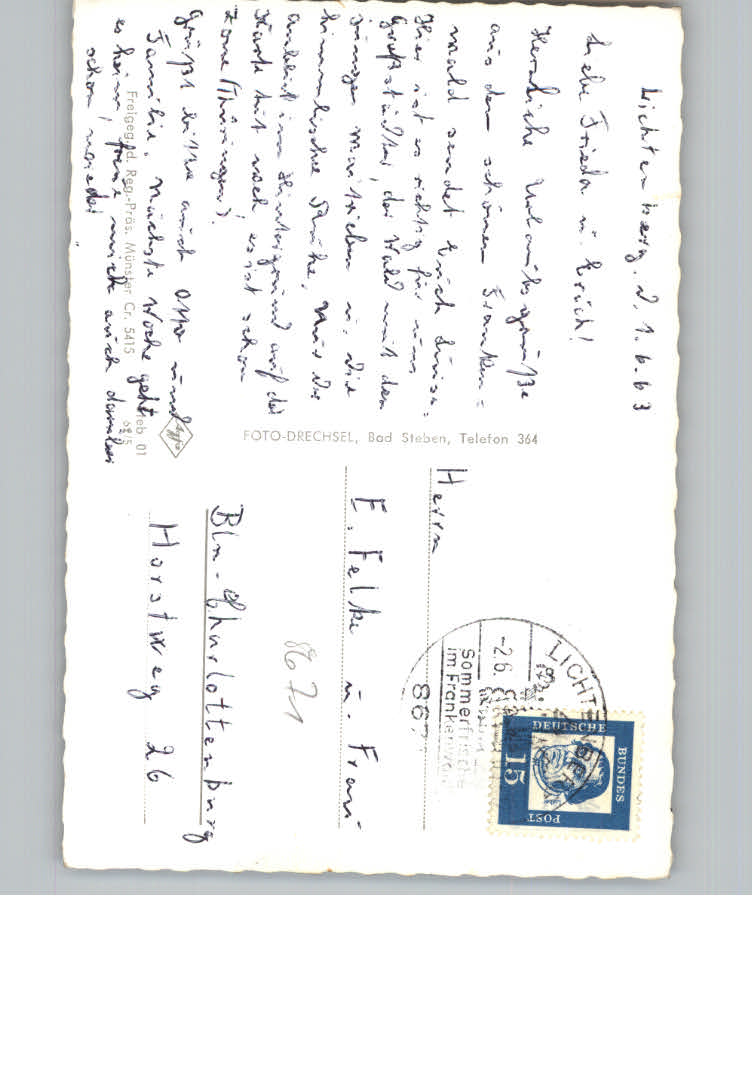 Lichtenberg, d. 1.6.63
Liebe Frieda u. Erich!
Herzliche Urlaubsgrüße
aus dem schönen Franken=
wald sendet Erich
Hier ist es richtig für uns
Großstädter, der Wald mit den
jungen Maitrieben u. die
himmlische Ruhe. Nur der
Anblick im Hintergrund auf der
Karte tut weh, es ist schon
Zone (Thüringen).
Grüßt bitte auch Otto und
Familie. Nächste Woche geht
es heim, freue mich auch darauf
schon, wieder
Freigeg. d. Reg.-Präs. Münster Cr. 5415
FOTO-DRECHSEL, Bad Steben, Telefon 364
Herrn
E. Felke u. Frau
8671
Bln-Charlottenburg
Horstweg 26
LICHTENBERG
-2.6.
Sommerfrische
im Frankenwald
867
DEUTSCHE
BUNDES
POST
15